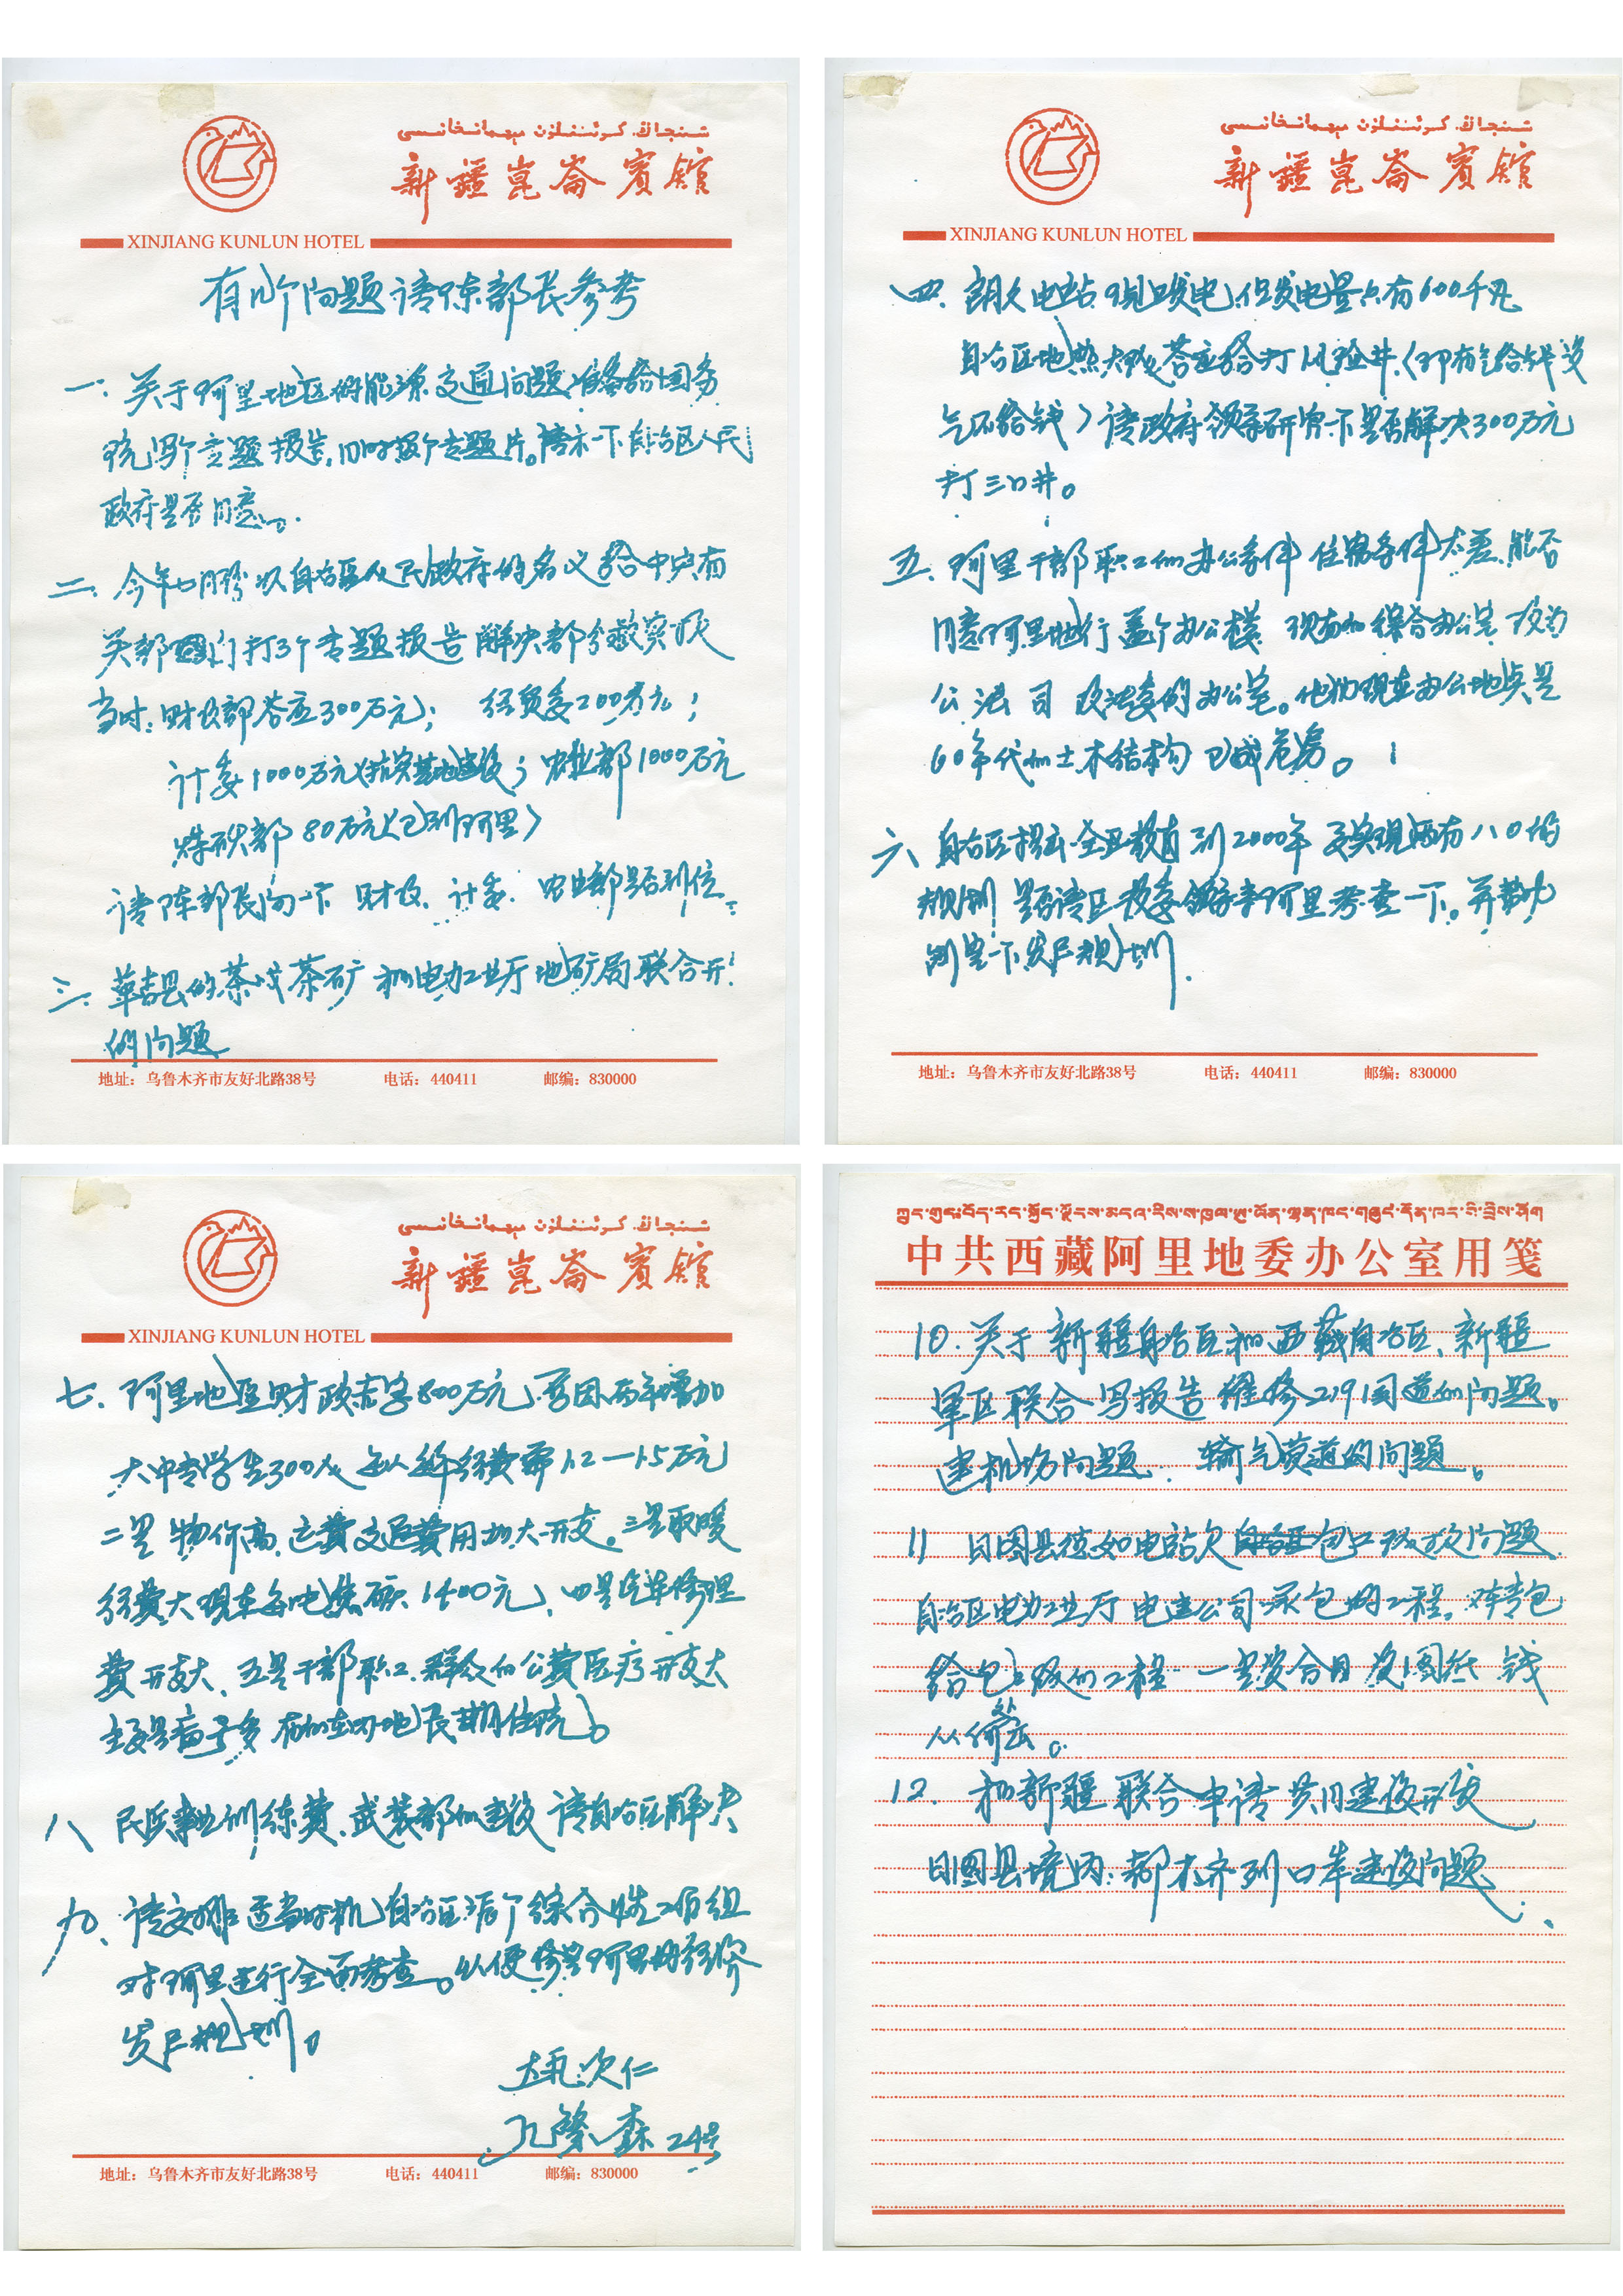 شىنجاڭ كۇئېنلۇن مېھمانخانىسى
新疆崑崙賓館
XINJIANG KUNLUN HOTEL
有几个问题请陈部长参考
一.关于阿里地区的能源、交通问题,准备给国务
院写个专题报告,同时报个专题片。请示一下自治区人民
政府是否同意。
二.今年七月份以自治区人民政府的名义给中央有
关部门打了3个专题报告解决部分救灾款
当时:财政部答应300万元; 经贸委200万元;
计委1000万元(抗灾基地建设);农业部1000万元
煤碳部80万元(已到阿里)
请陈部长问一下 财政、计委、农业部是否到位。
三.革吉县的茶 茶矿 和电力工业厅 地矿局 联合开
的问题
地址:乌鲁木齐市友好北路38号 电话:440411 邮编:830000
شىنجاڭ كۇئېنلۇن مېھمانخانىسى
新疆崑崙賓館
XINJIANG KUNLUN HOTEL
四.朗久电站 现正发电,但发电量只有600千瓦
自治区地热大队答应给打风险井(即有气给钱 没
气不给钱)请政府领导研究一下是否解决300万元
打三口井。
五.阿里干部职工的办公条件 住宿条件太差,能否
同意阿里地行盖个办公楼 现有的综合办公室 改为
公 法 司 政法委的办公室。他们现在办公地点是
60年代的土木结构 已成危房。
六 自治区提出全区教育到2000年要实现两有八〇的
规划 是否请区教委领导来阿里考查一下。并帮助
制定一下发展规划.
地址:乌鲁木齐市友好北路38号 电话:440411 邮编:830000
شىنجاڭ كۇئېنلۇن مېھمانخانىسى
新疆崑崙賓館
XINJIANG KUNLUN HOTEL
七.阿里地区财政赤字800万元,要因两年增加
大中专学生300人 每人每年经费需1.2—1.5万元
二是 物价高、运费交通费用加大开支。三是取暖
经费大现在每吨焦碳1400元、四是汽车修理
费开支大、五是干部职工、群众的公费医疗开支大
主要是病号多 有的在内地长期住院。
八 民兵事业训练费、武装部的建设 请自治区解决
九、请安排适当时机 自治区派个综合性工作组
对阿里进行全面考查。以便修定阿里的经济
发展规划。
达瓦次仁
孔繁森 24号
地址:乌鲁木齐市友好北路38号 电话:440411 邮编:830000
中共西藏阿里地委办公室用笺
10.关于新疆自治区和西藏自治区、新疆
军区联合写报告 维修219国道的问题。
建机场问题. 输气管道的问题。
11 日图县德如电站欠包工队款问题.
自治区电力工业厅电建公司承包的工程,对转包
给包工队的工程. 一是没合同 没图纸 钱
从何处出。
12. 和新疆联合申请共同建设开放
日图县境内:都木齐列口岸建设问题